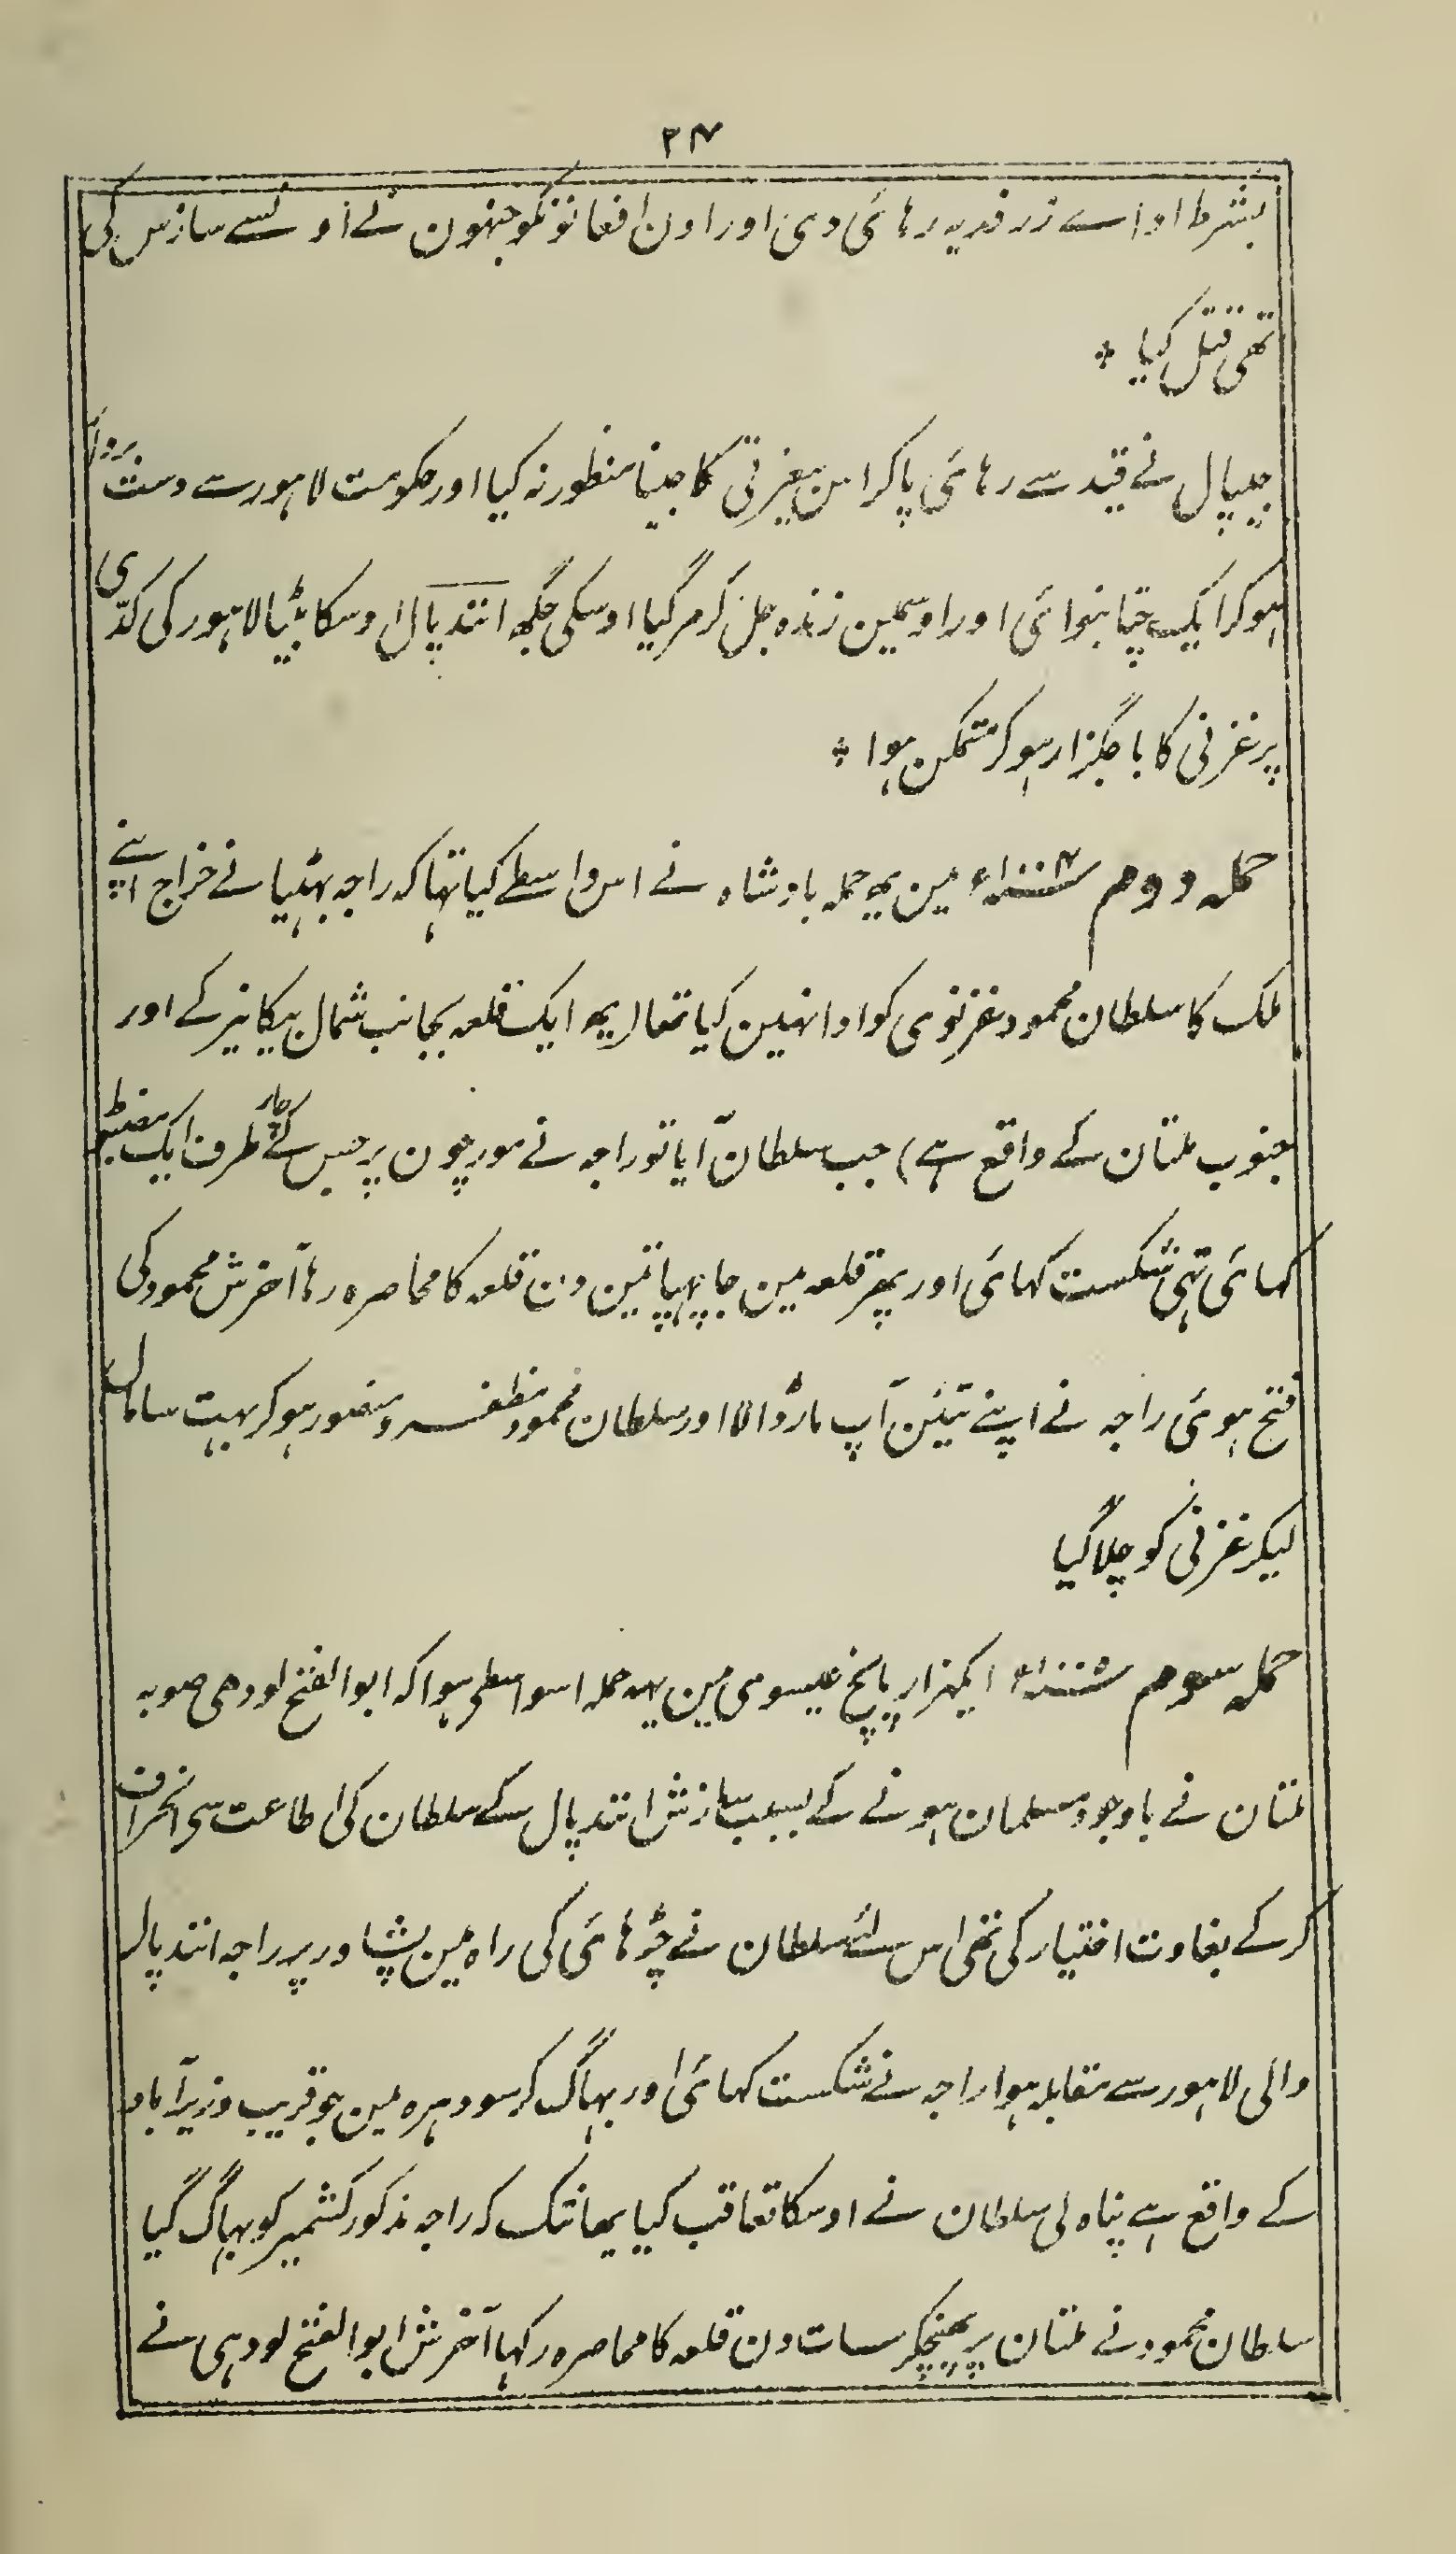 ۲۴
بشرط اداے زر فدیہ رہائی دی اور اون افغانونکو جنہون نے اوسے سازش کی
تھی قتل کیا ۞
جیپال نے قید سے رہائی پاکر اس بیغیرتی کا جینا منظور نہ کیا اور حکومت لاہور سے دست بردار
ہوکر ایک چتا بنوائی اور اوسمین زندہ جل کر مرگیا اوسکی جگہ انند پال اوسکا بٹیا لاہور کی گدّی
پر غزنی کا باجگزار ہوکر متمکن ہوا ۞
حملہ دوم ۱۰۰۴ء مین یہ حملہ بادشاہ نے اس واسطے کیا تہا کہ راجہ بہٹیا نے خراج اپنے
ملک کا سلطان محمود غزنوی کو ادا نہین کیا تھا (یہ ایک قلعہ بجانب شمال بیکانیر کے اور
جنوب ملتان کے واقع ہے) جب سلطان آیا تو راجہ نے مورچون پر جس کے چار طرف ایک
کہائی تہی شکست کہائی اور پھر قلعہ مین جا چہپا تین دن قلعہ کا محاصرہ رہا آخرش محمود کی
فتح ہوئی راجہ نے اپنے تئین آپ مار ڈالا اور سلطان محمود مظفر و منصور ہوکر بہت سامان
لیکر غزنی کو چلا گیا
حملہ سوم ۱۰۰۵ء ایکہزار پانچ عیسوی مین یہہ حملہ اسواسطی ہوا کہ ابوالفتح لودھی صوبہ
ملتان نے باوجود مسلمان ہونے کے بسبب سازش انند پال کے سلطان کی اطاعت سی انحراف
کرکے بغاوت اختیار کی تھی اس لئے سلطان نے چڑہائی کی راہ مین پشاور پر راجہ انند پال
والی لاہور سے مقابلہ ہوا راجہ نے شکست کہائی اور بہاگ کر سودہرہ مین جو قریب وزیرآباد
کے واقع ہے پناہ لی سلطان نے اوسکا تعاقب کیا یہانتک کہ راجہ مذکور کشمیر کو بہاگ گیا
سلطان محمود نے ملتان پر پھنچکر سات دن قلعہ کا محاصرہ رکہا آخرش ابوالفتح لودہی نے